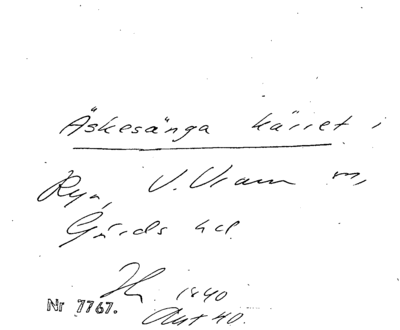 Äskesänga kärret i
Rya, V. Vram m,
Gärds hd.
1840
Nr 7767. Akt 40.